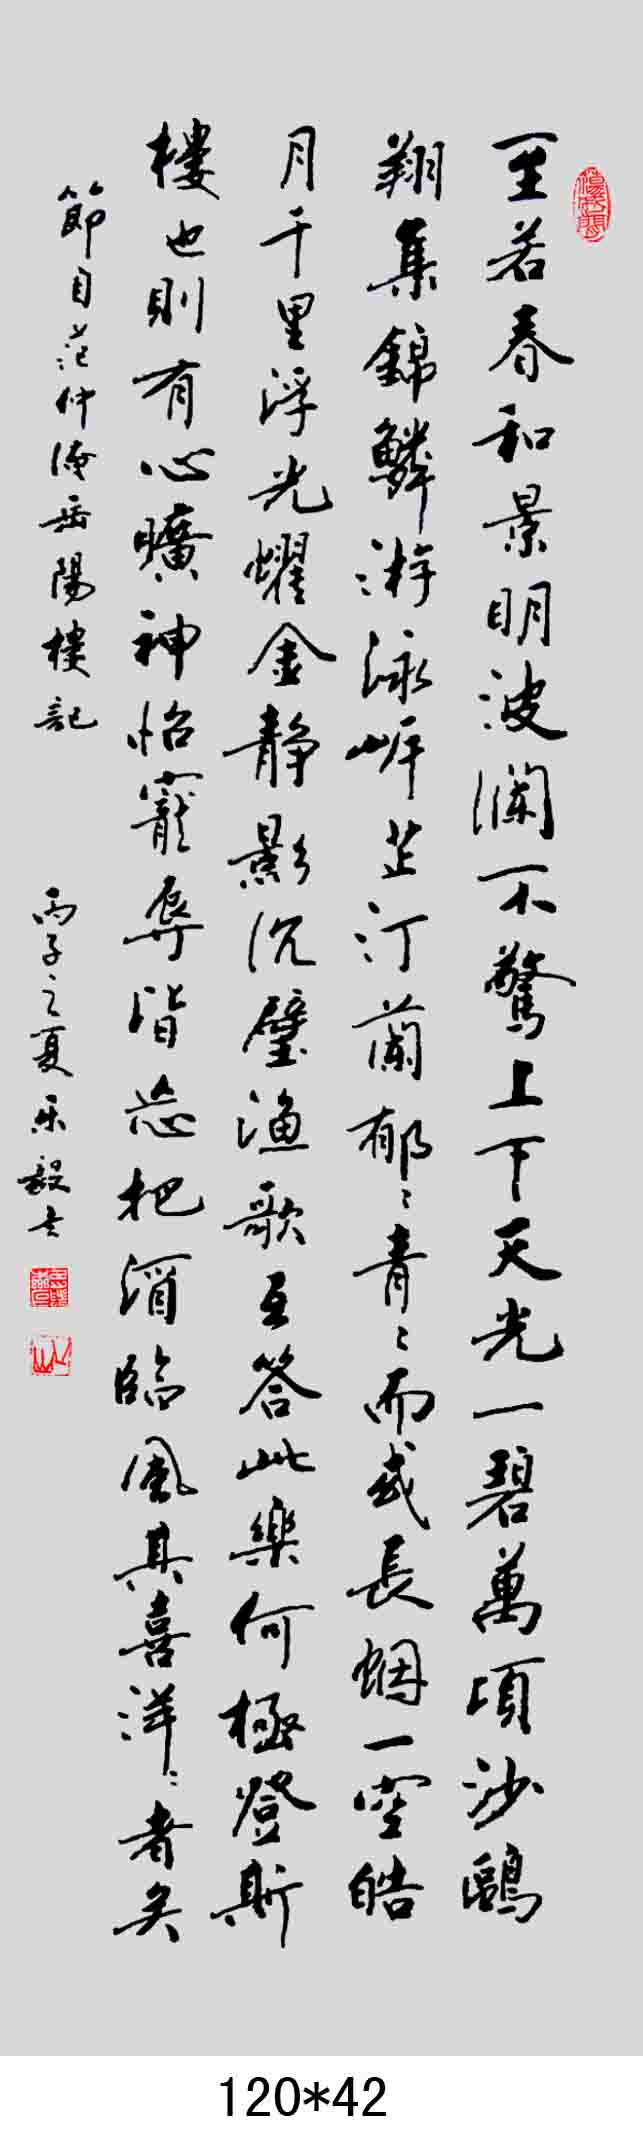 至若春和景明波瀾不驚上下天光一碧萬頃沙鷗
翔集錦鱗游泳岸芷汀蘭郁々青々而或長烟一空皓
月千里浮光燿金静影沉璧漁歌互答此樂何極登斯
樓也則有心曠神怡寵辱皆忘把酒臨風其喜洋々者矣
節目范仲淹岳陽樓記
丙子之夏乐毅书
120*42